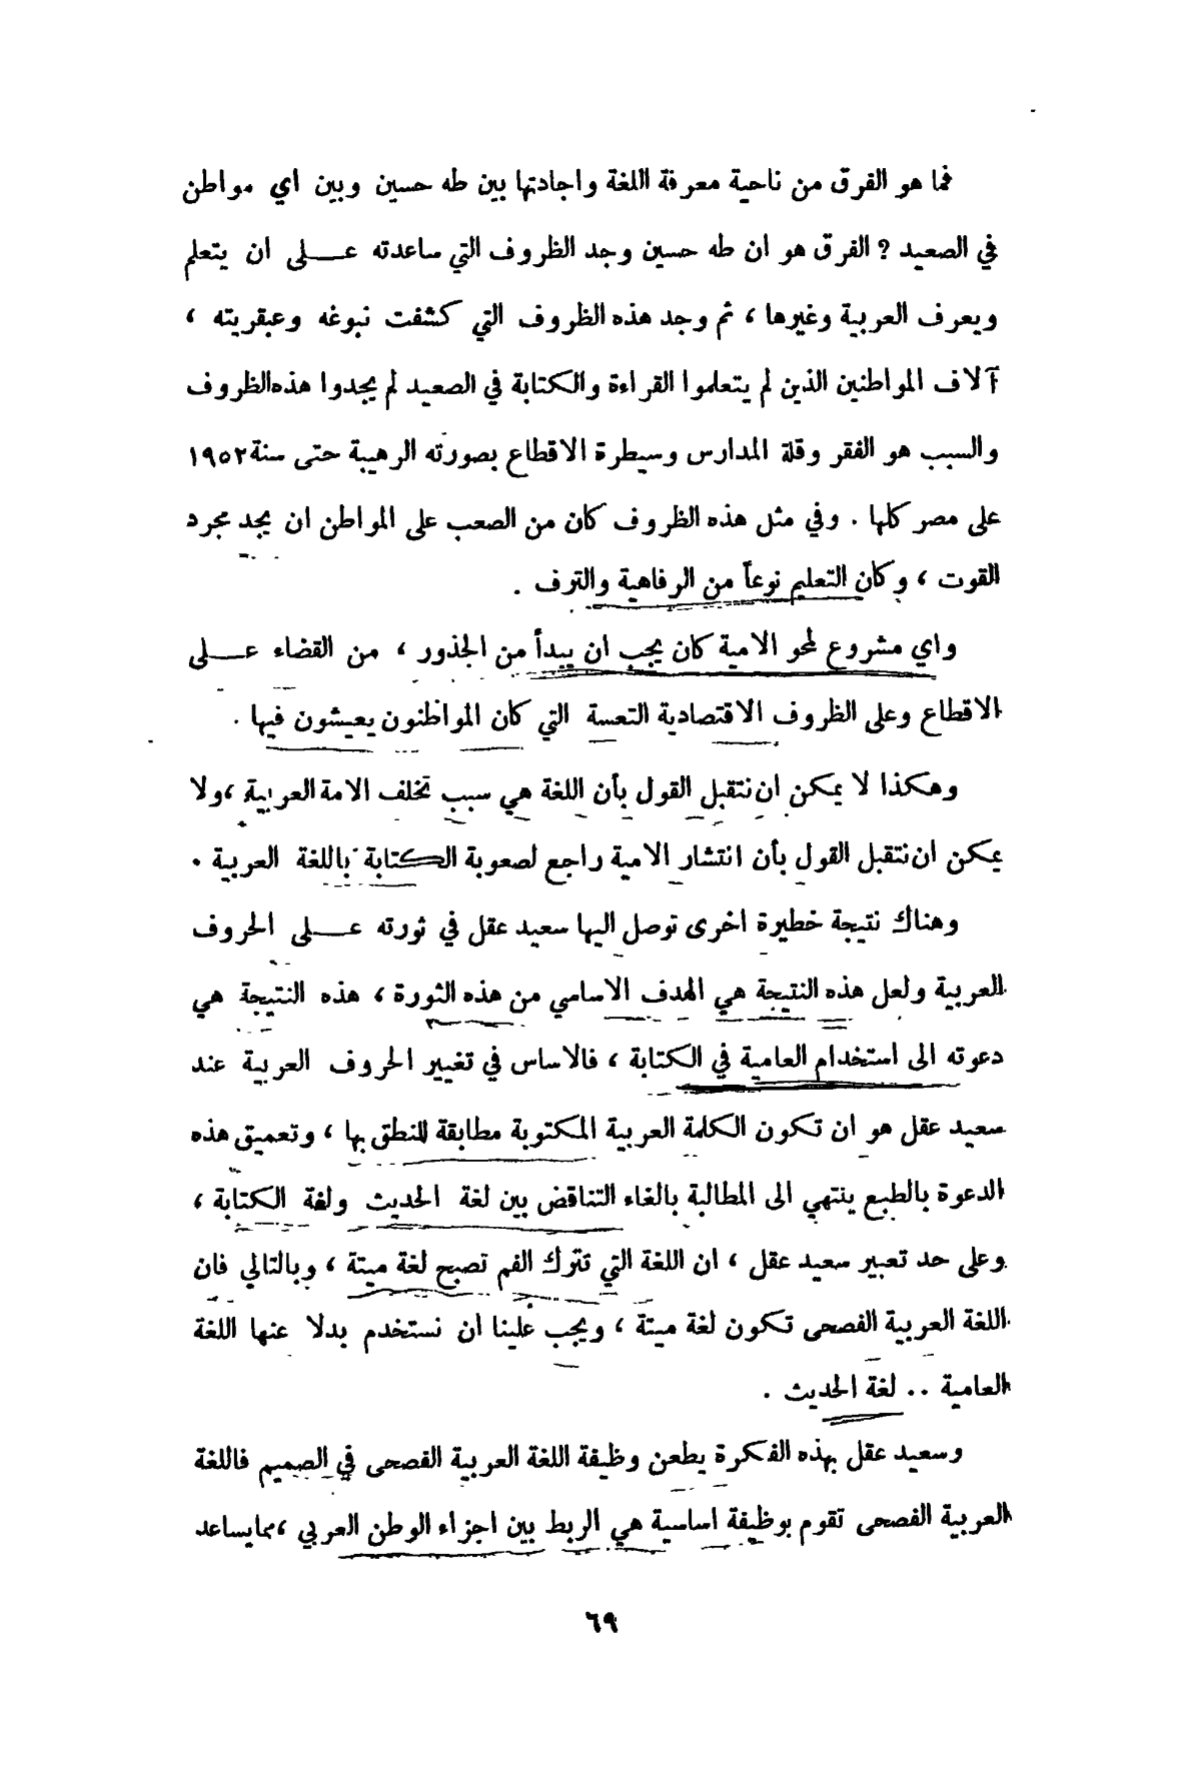 فما هو الفرق من ناحية معرفة اللغة واجادتها بين طه حسين وبين اي مواطن
في الصعيد ? الفرق هو ان طه حسين وجد الظروف التي ساعدته عـــلى ان يتعلم
ويعرف العربية وغيرها ، ثم وجد هذه الظروف التي كشفت نبوغه وعبقريته ،
آلاف المواطنين الذين لم يتعلموا القراءة والكتابة في الصعيد لم يجدوا هذه الظروف
والسبب هو الفقر وقلة المدارس وسيطرة الاقطاع بصورته الرهيبة حتى سنة ١٩٥٢
على مصر كلها . وفي مثل هذه الظروف كان من الصعب على المواطن ان يجد مجرد
القوت ، وكان التعليم نوعاً من الرفاهية والترف .
واي مشروع لمحو الامية كان يجب ان يبدأ من الجذور ، من القضاء عـــلى
الاقطاع وعلى الظروف الاقتصادية التعسة التي كان المواطنون يعيشون فيها .
وهكذا لا يمكن ان نتقبل القول بأن اللغة هي سبب تخلف الامة العربية ، ولا
يمكن ان نتقبل القول بأن انتشار الامية راجع لصعوبة الكتابة باللغة العربية .
وهناك نتيجة خطيرة اخرى توصل اليها سعيد عقل في ثورته عـــلى الحروف
العربية ولعل هذه النتيجة هي الهدف الاساسي من هذه الثورة ، هذه النتيجة هي
دعوته الى استخدام العامية في الكتابة ، فالاساس في تغيير الحروف العربية عند
سعيد عقل هو ان تكون الكلمة العربية المكتوبة مطابقة للنطق بها ، وتعميق هذه
الدعوة بالطبع ينتهي الى المطالبة بالغاء التناقض بين لغة الحديث ولغة الكتابة ،
وعلى حد تعبير سعيد عقل ، ان اللغة التي تترك الفم تصبح لغة ميتة ، وبالتالي فان
اللغة العربية الفصحى تكون لغة ميتة ، ويجب علينا ان نستخدم بدلا عنها اللغة
العامية .. لغة الحديث .
وسعيد عقل بهذه الفكرة يطعن وظيفة اللغة العربية الفصحى في الصميم فاللغة
العربية الفصحى تقوم بوظيفة اساسية هي الربط بين اجزاء الوطن العربي ، مما يساعد
٦٩